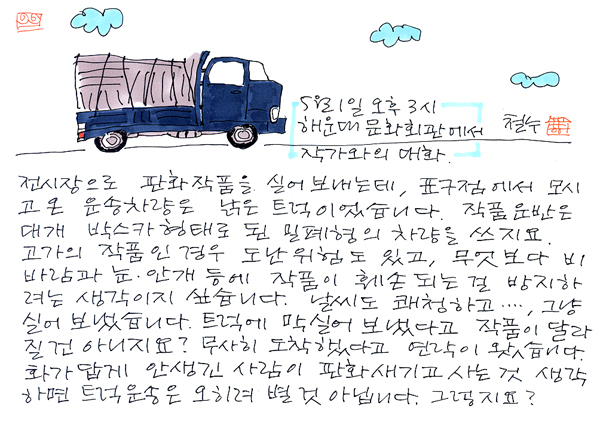 5월1일 오후 3시
해운대 문화회관에서
작가와의 대화.
철수
전시장으로 판화작품을 실어보내는데, 표구점에서 모시
고온 운송차량은 낡은 트럭이었습니다. 작품운반은
대개 박스카형태로 된 밀폐형의 차량을 쓰지요.
고가의 작품인 경우 도난위험도 있고, 무엇보다 비
바람과 눈·안개 등에 작품이 훼손되는걸 방지하
려는 생각이지 싶습니다. 날씨도 쾌청하고····, 그냥
실어 보냈습니다. 트럭에 막실어 보냈다고 작품이 달라
질건 아니지요? 무사히 도착했다고 연락이 왔습니다.
화가답게 안생긴 사람이 판화새기고사는것 생각
하면 트럭운송은 오히려 별것 아닙니다. 그렇지요?